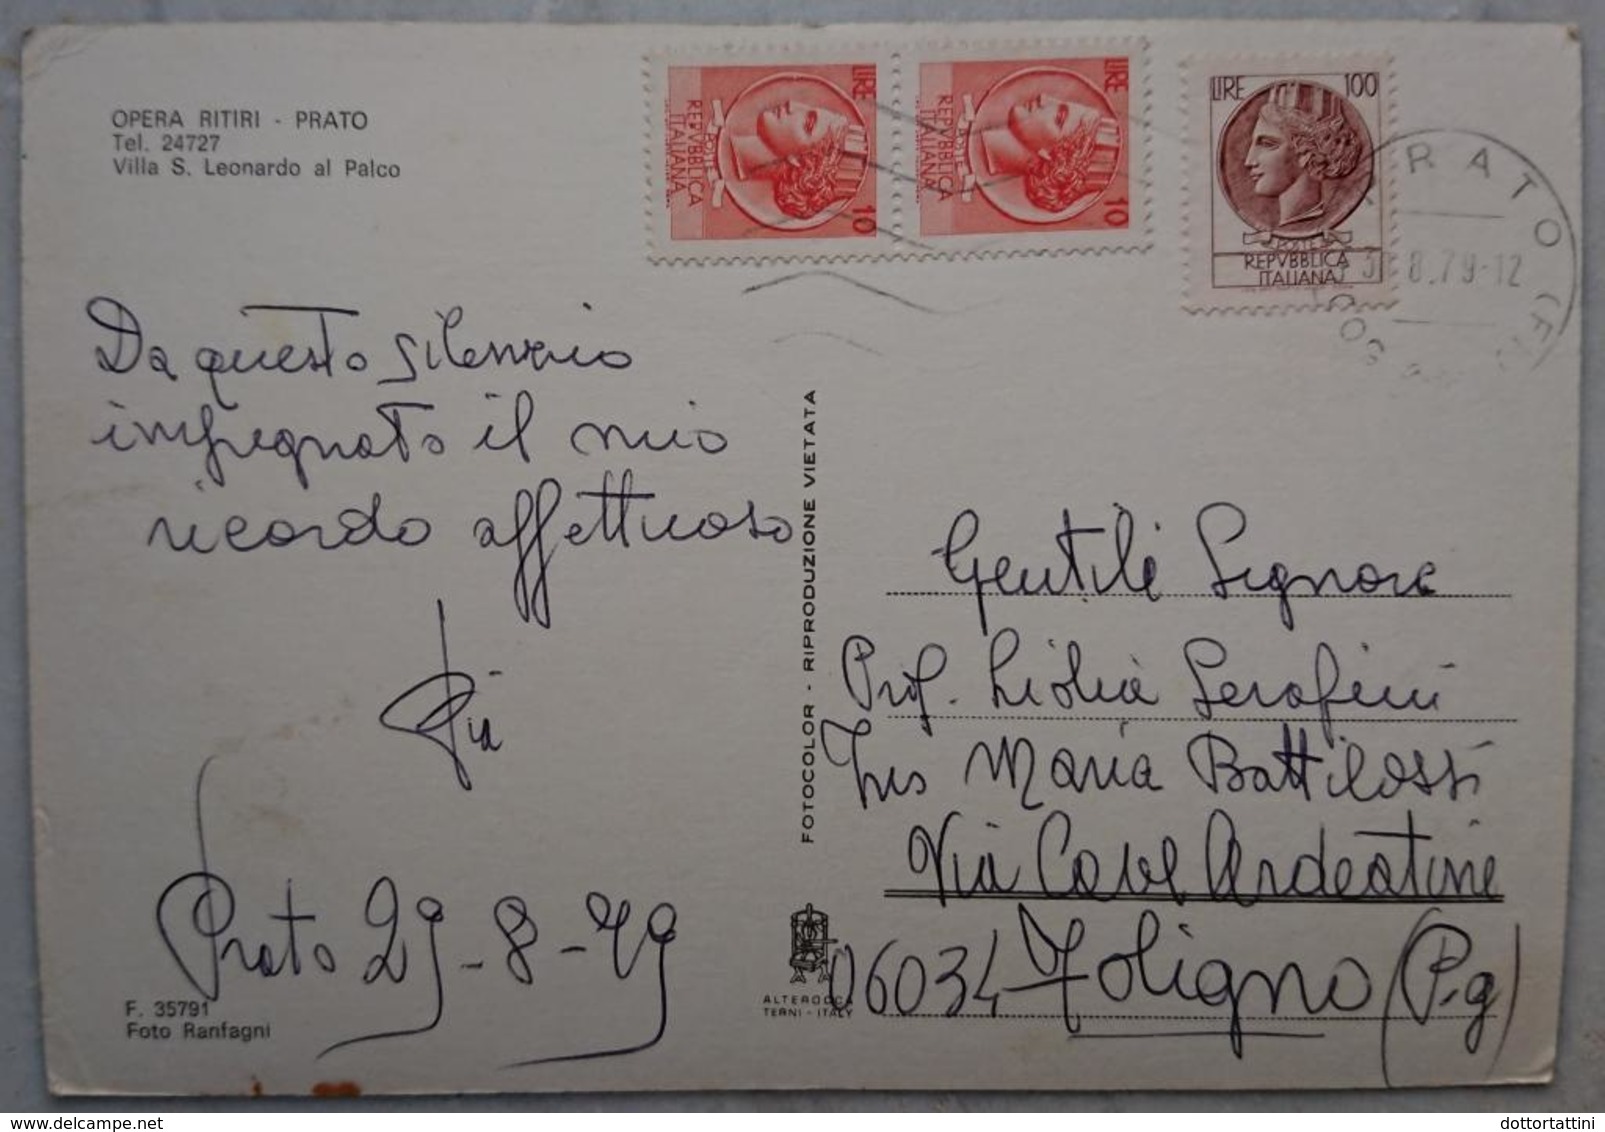 OPERA RITIRI - PRATO
Tel. 24727
Villa S. Leonardo al Palco
LIRE 10
POSTE
REPVBBLICA
ITALIANA
LIRE 10
POSTE
REPVBBLICA
ITALIANA
LIRE 100
POSTE
REPVBBLICA
ITALIANA
PRATO (FI)
8.79-12
Da questo silenzio
impegnato il mio
ricordo affettuoso
Prato 29-8-79
F. 35791
Foto Ranfagni
FOTOCOLOR - RIPRODUZIONE VIETATA
ALTEROCCA
TERNI - ITALY
Gentile Signora
Prof. Serafini
Maria Battilossi
Via Cave Ardeatine
06034 Foligno (Pg)
dottortattini